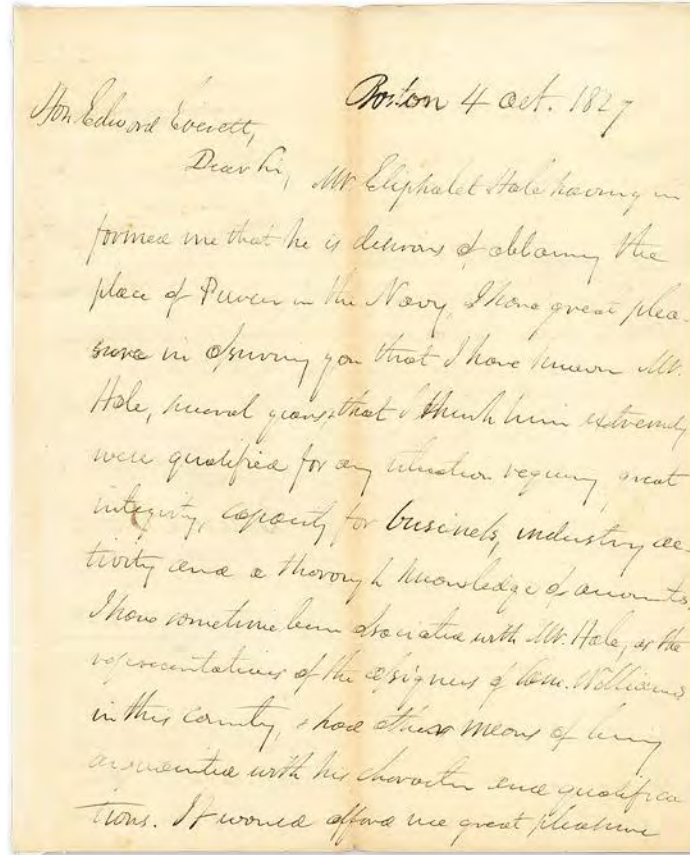 Boston 4 Oct. 1827
Hon Edward Everett,
Dear Sir, Mr. Eliphalet Hale having in
formed me that he is desirous of obtaining the
place of Purser in the Navy, I have great plea-
sure in assuring you that I have known Mr.
Hale, several years, & that I think him extremely
well qualified for any situation requiring great
integrity, capacity for business, industry ac-
tivity and a thorough knowledge of accounts
I have sometime been associated with Mr. Hale, as the
representatives of the assignees of Williams
in this country, & had other means of being
acquainted with his character and qualifica
tions. It would afford me great pleasure